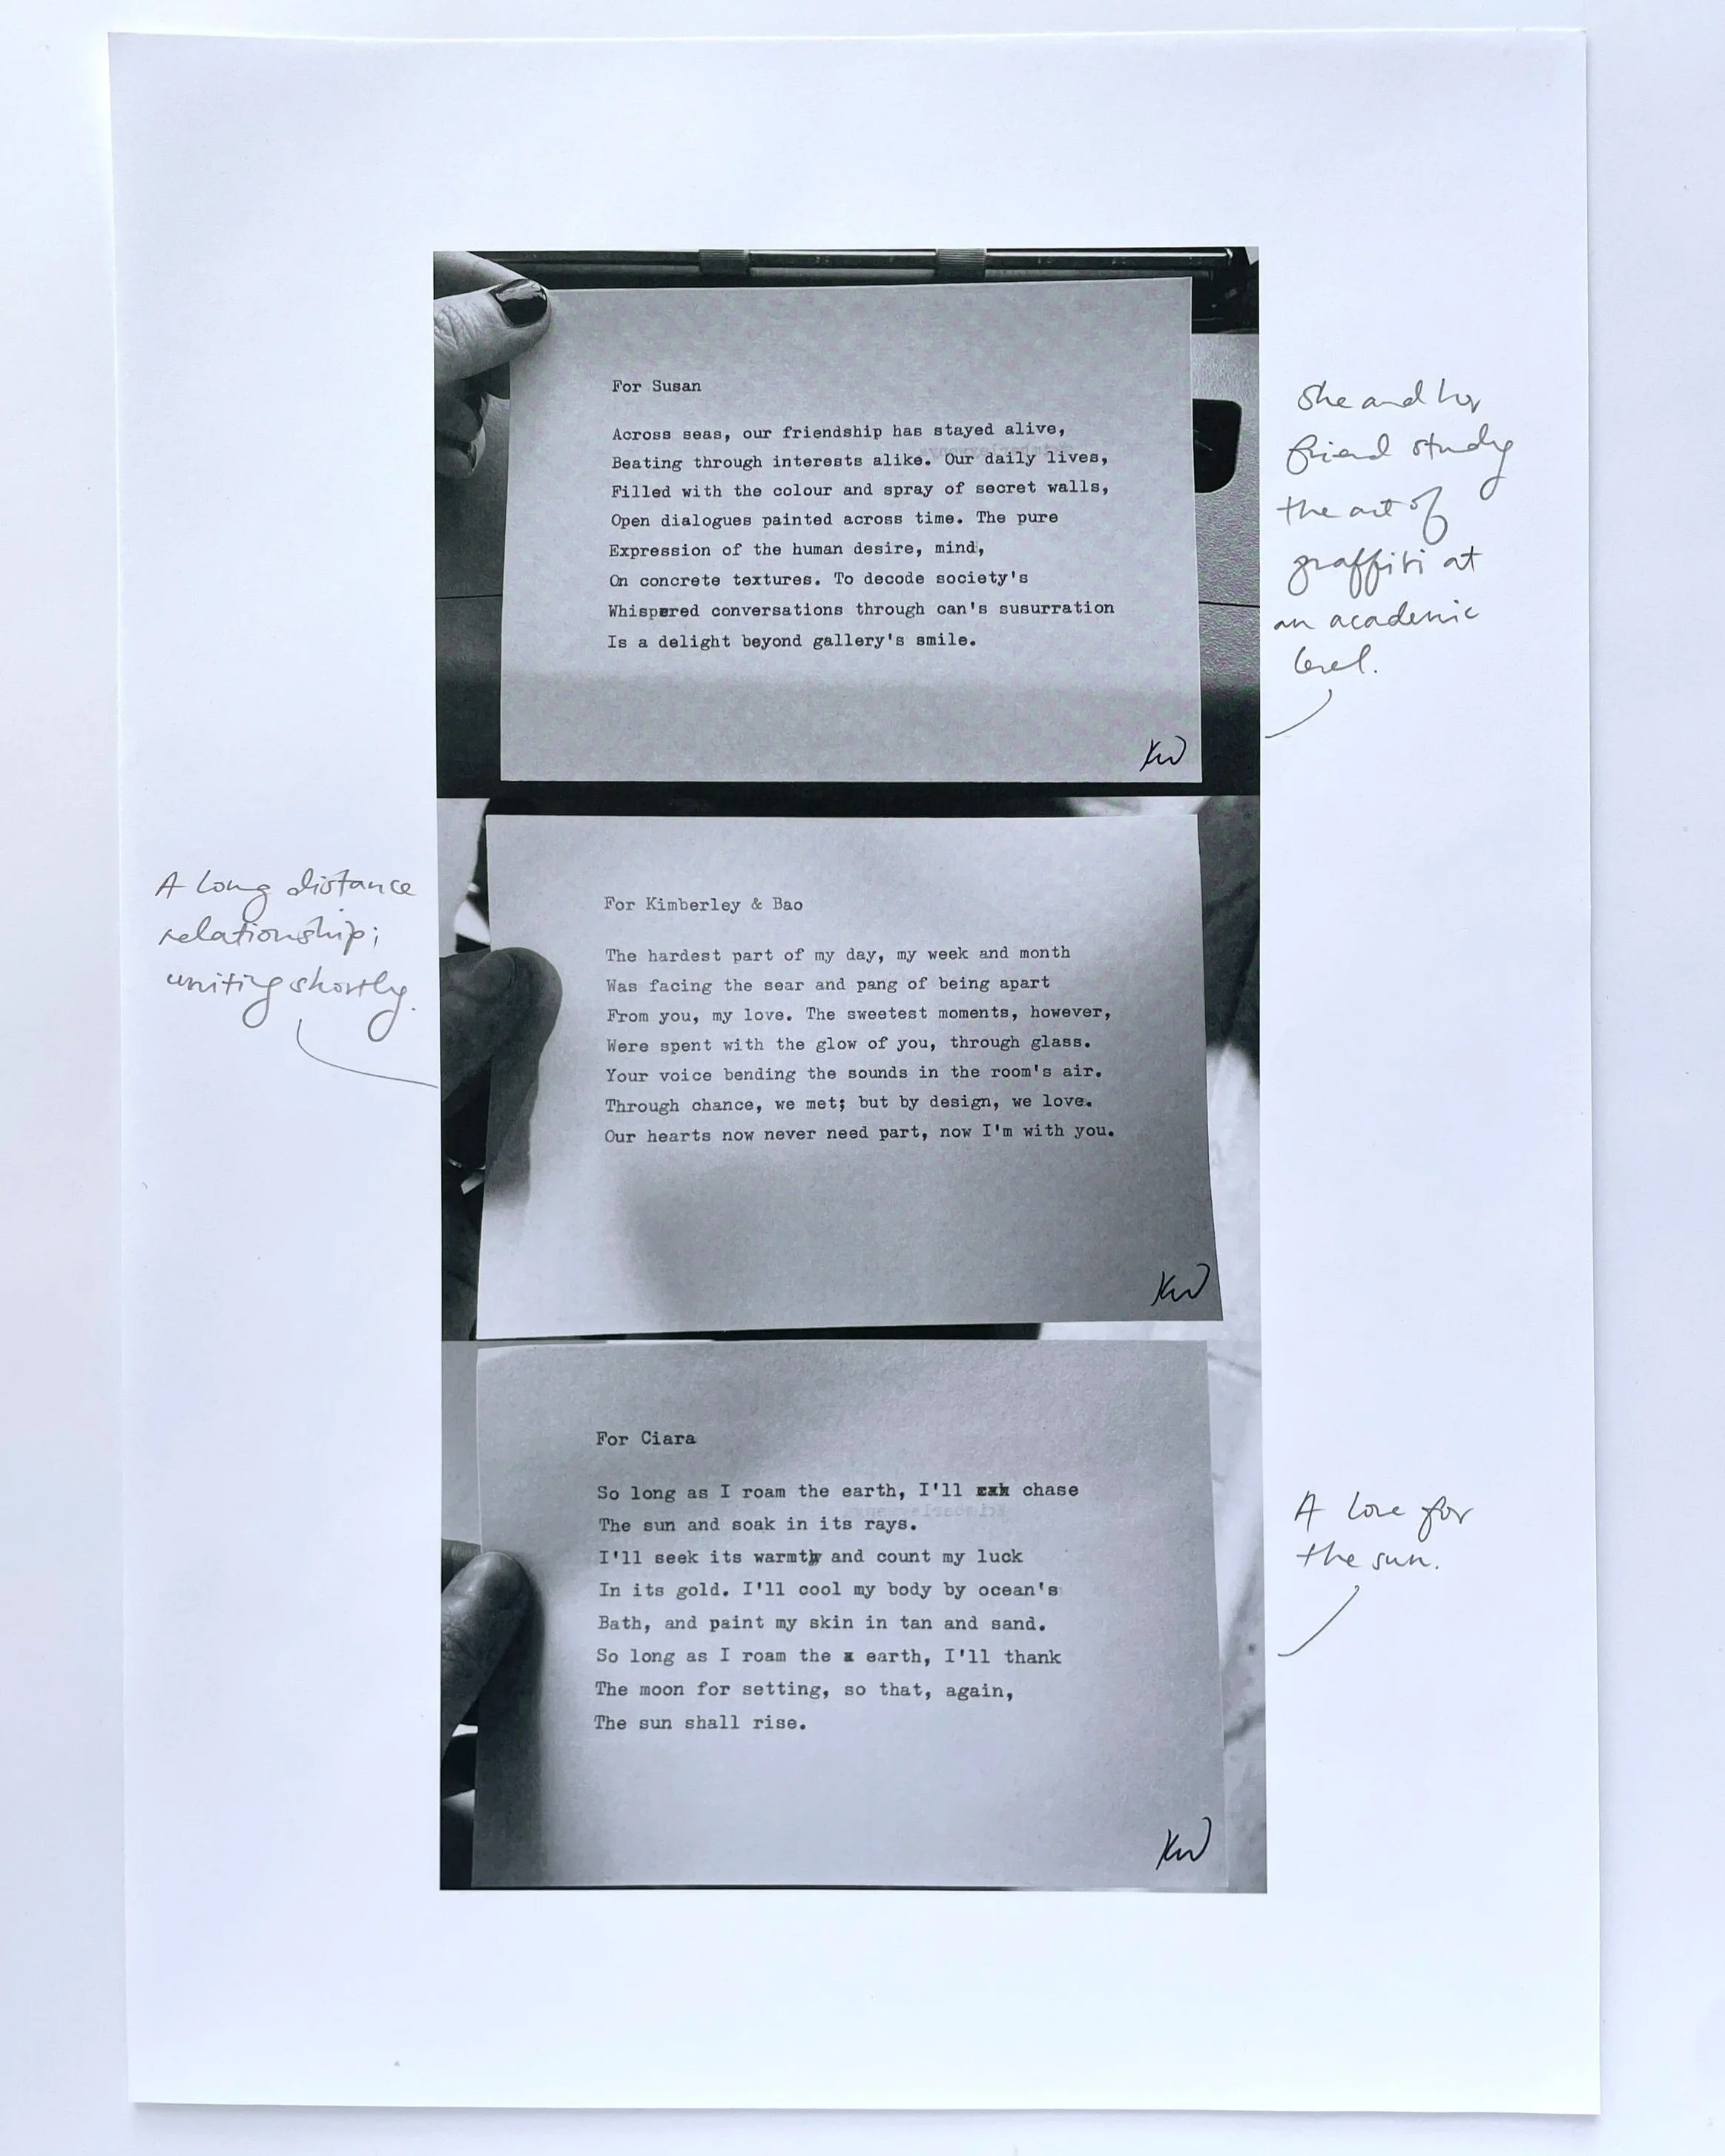 For Susan
Across seas, our friendship has stayed alive,
Beating through interests alike. Our daily lives,
Filled with the colour and spray of secret walls,
Open dialogues painted across time. The pure
Expression of the human desire, mind,
On concrete textures. To decode society's
Whispered conversations through can's susurration
Is a delight beyond gallery's smile.
KW
She and her
friend study
the art of
graffiti at
an academic
level.
For Kimberley & Bao
The hardest part of my day, my week and month
Was facing the sear and pang of being apart
From you, my love. The sweetest moments, however,
Were spent with the glow of you, through glass.
Your voice bending the sounds in the room's air.
Through chance, we met; but by design, we love.
Our hearts now never need part, now I'm with you.
KW
A long distance
relationship;
uniting shortly.
For Ciara
So long as I roam the earth, I'll chase
The sun and soak in its rays.
I'll seek its warmth and count my luck
In its gold. I'll cool my body by ocean's
Bath, and paint my skin in tan and sand.
So long as I roam the x earth, I'll thank
The moon for setting, so that, again,
The sun shall rise.
KW
A love for
the sun.